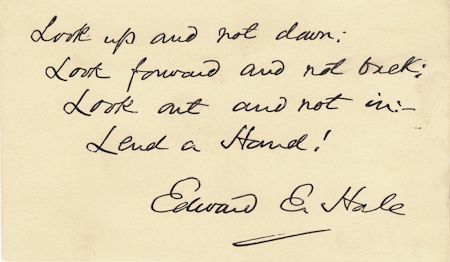 Look up and not down:
Look forward and not back:
Look out and not in:—
Lend a Hand!
Edward E. Hale